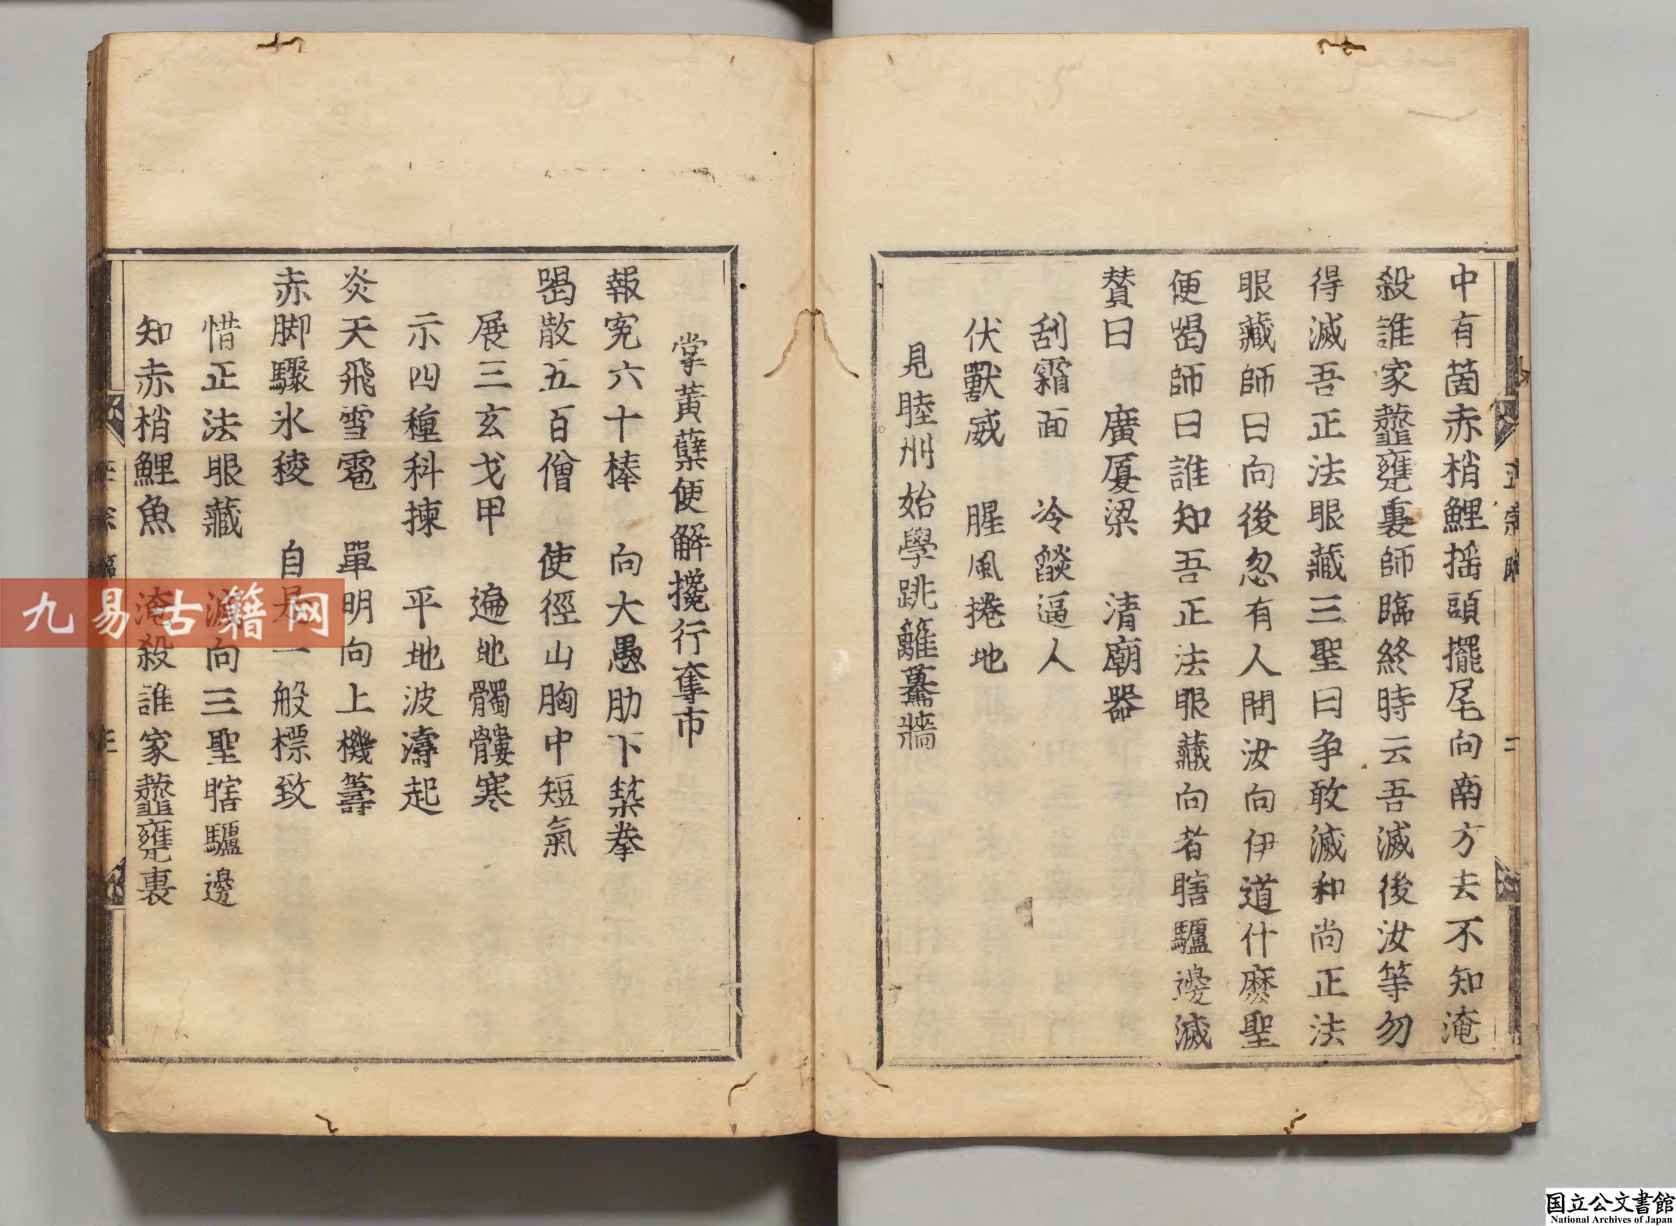 中有箇赤梢鯉揺頭擺尾向南方去不知淹
殺誰家虀甕裏師臨終時云吾滅後汝等勿
得滅吾正法眼藏三聖曰争敢滅和尚正法
眼藏師曰向後忽有人問汝向伊道什麽聖
便喝師曰誰知吾正法眼藏向者瞎驢邊滅
賛曰　廣厦梁　清廟器
刮霜面　冷𦦨逼人
伏獸威　腥風捲地
見睦州始學跳籬驀牆
掌黃蘗便解攙行奪市
報寃六十棒　向大愚肋下築拳
喝散五百僧　使徑山胸中短氣
展三玄戈甲　遍地髑髏寒
示四種科揀　平地波濤起
炎天飛雪雹　單明向上機籌
赤脚驟氷稜　自是一般標致
惜正法眼藏　滅向三聖瞎驢邊
知赤梢鯉魚　淹殺誰家虀甕裏
九易古籍网
国立公文書館
National Archives of Japan